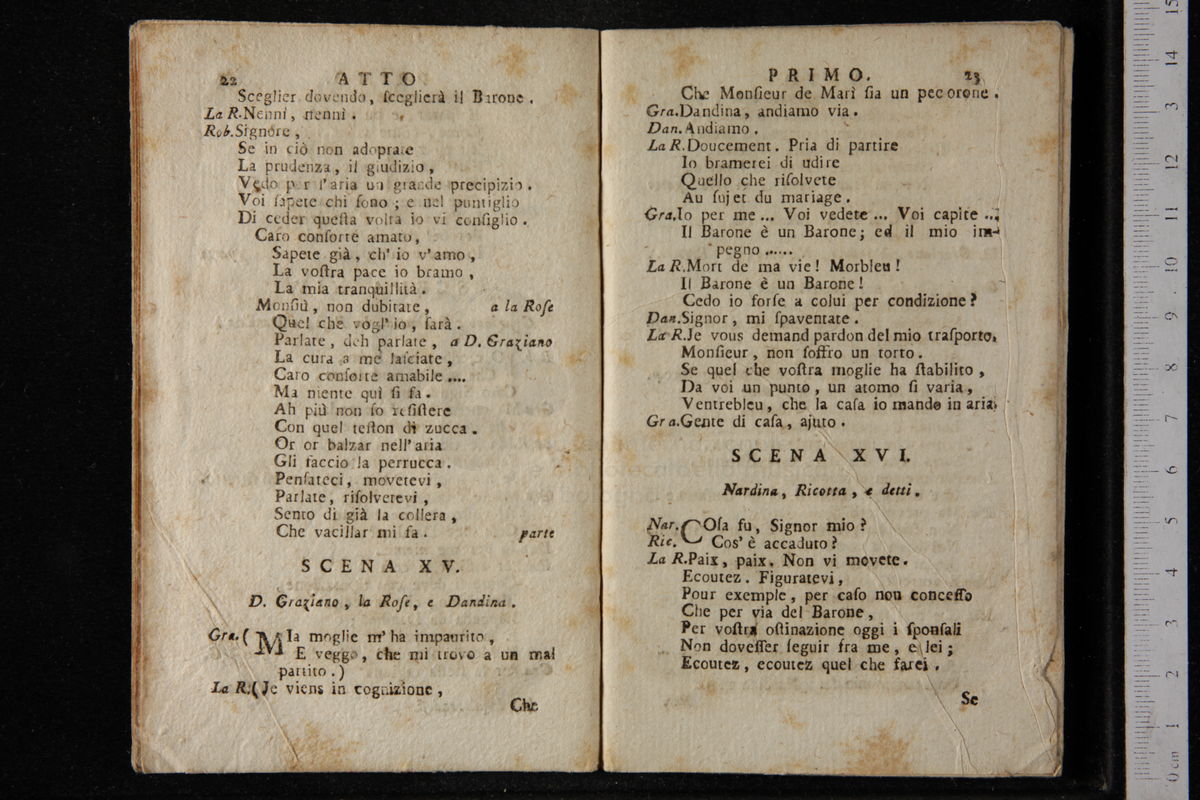 22 ATTO
Sceglier dovendo, ſceglierà il Barone.
La R. Nenni, nenni.
Rob. Signore,
Se in ciò non adoprate
La prudenza, il giudizio,
Vedo per l'aria un grande precipizio.
Voi ſapete chi ſono; e nel puntiglio
Di ceder queſta volta io vi conſiglio.
Caro conſorte amato,
Sapete già, ch' io v'amo,
La voſtra pace io bramo,
La mia tranquillità.
Monſiù, non dubitate, a la Roſe
Quel che vogl' io, ſarà.
Parlate, deh parlate, a D. Graziano
La cura a me laſciate,
Caro conſorte amabile ....
Ma niente quì ſi fa.
Ah più non ſo reſiſtere
Con quel teſton di zucca.
Or or balzar nell'aria
Gli faccio la perrucca.
Penſateci, movetevi,
Parlate, riſolvetevi,
Sento di già la collera,
Che vacillar mi fa. parte
SCENA XV.
D. Graziano, la Roſe, e Dandina.
Gra. (MIa moglie m'ha impaurito,
E veggo, che mi trovo a un mal
partito.)
La R. (Je viens in cognizione,
Che
PRIMO. 23
Che Monſieur de Marì ſia un pecorone.
Gra. Dandina, andiamo via.
Dan. Andiamo.
La R. Doucement. Pria di partire
Io bramerei di udire
Quello che riſolvete
Au ſujet du mariage.
Gra. Io per me ... Voi vedete ... Voi capite ...
Il Barone è un Barone; ed il mio im-
pegno ......
La R. Mort de ma vie! Morbleu!
Il Barone è un Barone!
Cedo io forſe a colui per condizione?
Dan. Signor, mi ſpaventate.
La R. Je vous demand pardon del mio traſporto,
Monſieur, non ſoffro un torto.
Se quel che voſtra moglie ha ſtabilito,
Da voi un punto, un atomo ſi varia,
Ventrebleu, che la caſa io mando in aria.
Gra. Gente di caſa, ajuto.
SCENA XVI.
Nardina, Ricotta, e detti.
Nar. COſa fu, Signor mio?
Ric. Cos' è accaduto?
La R. Paix, paix. Non vi movete.
Ecoutez. Figuratevi,
Pour exemple, per caſo non conceſſo
Che per via del Barone,
Per voſtra oſtinazione oggi i ſponſali
Non doveſſer ſeguir fra me, e lei;
Ecoutez, ecoutez quel che farei.
Se
0 cm 1 2 3 4 5 6 7 8 9 10 11 12 13 14 15